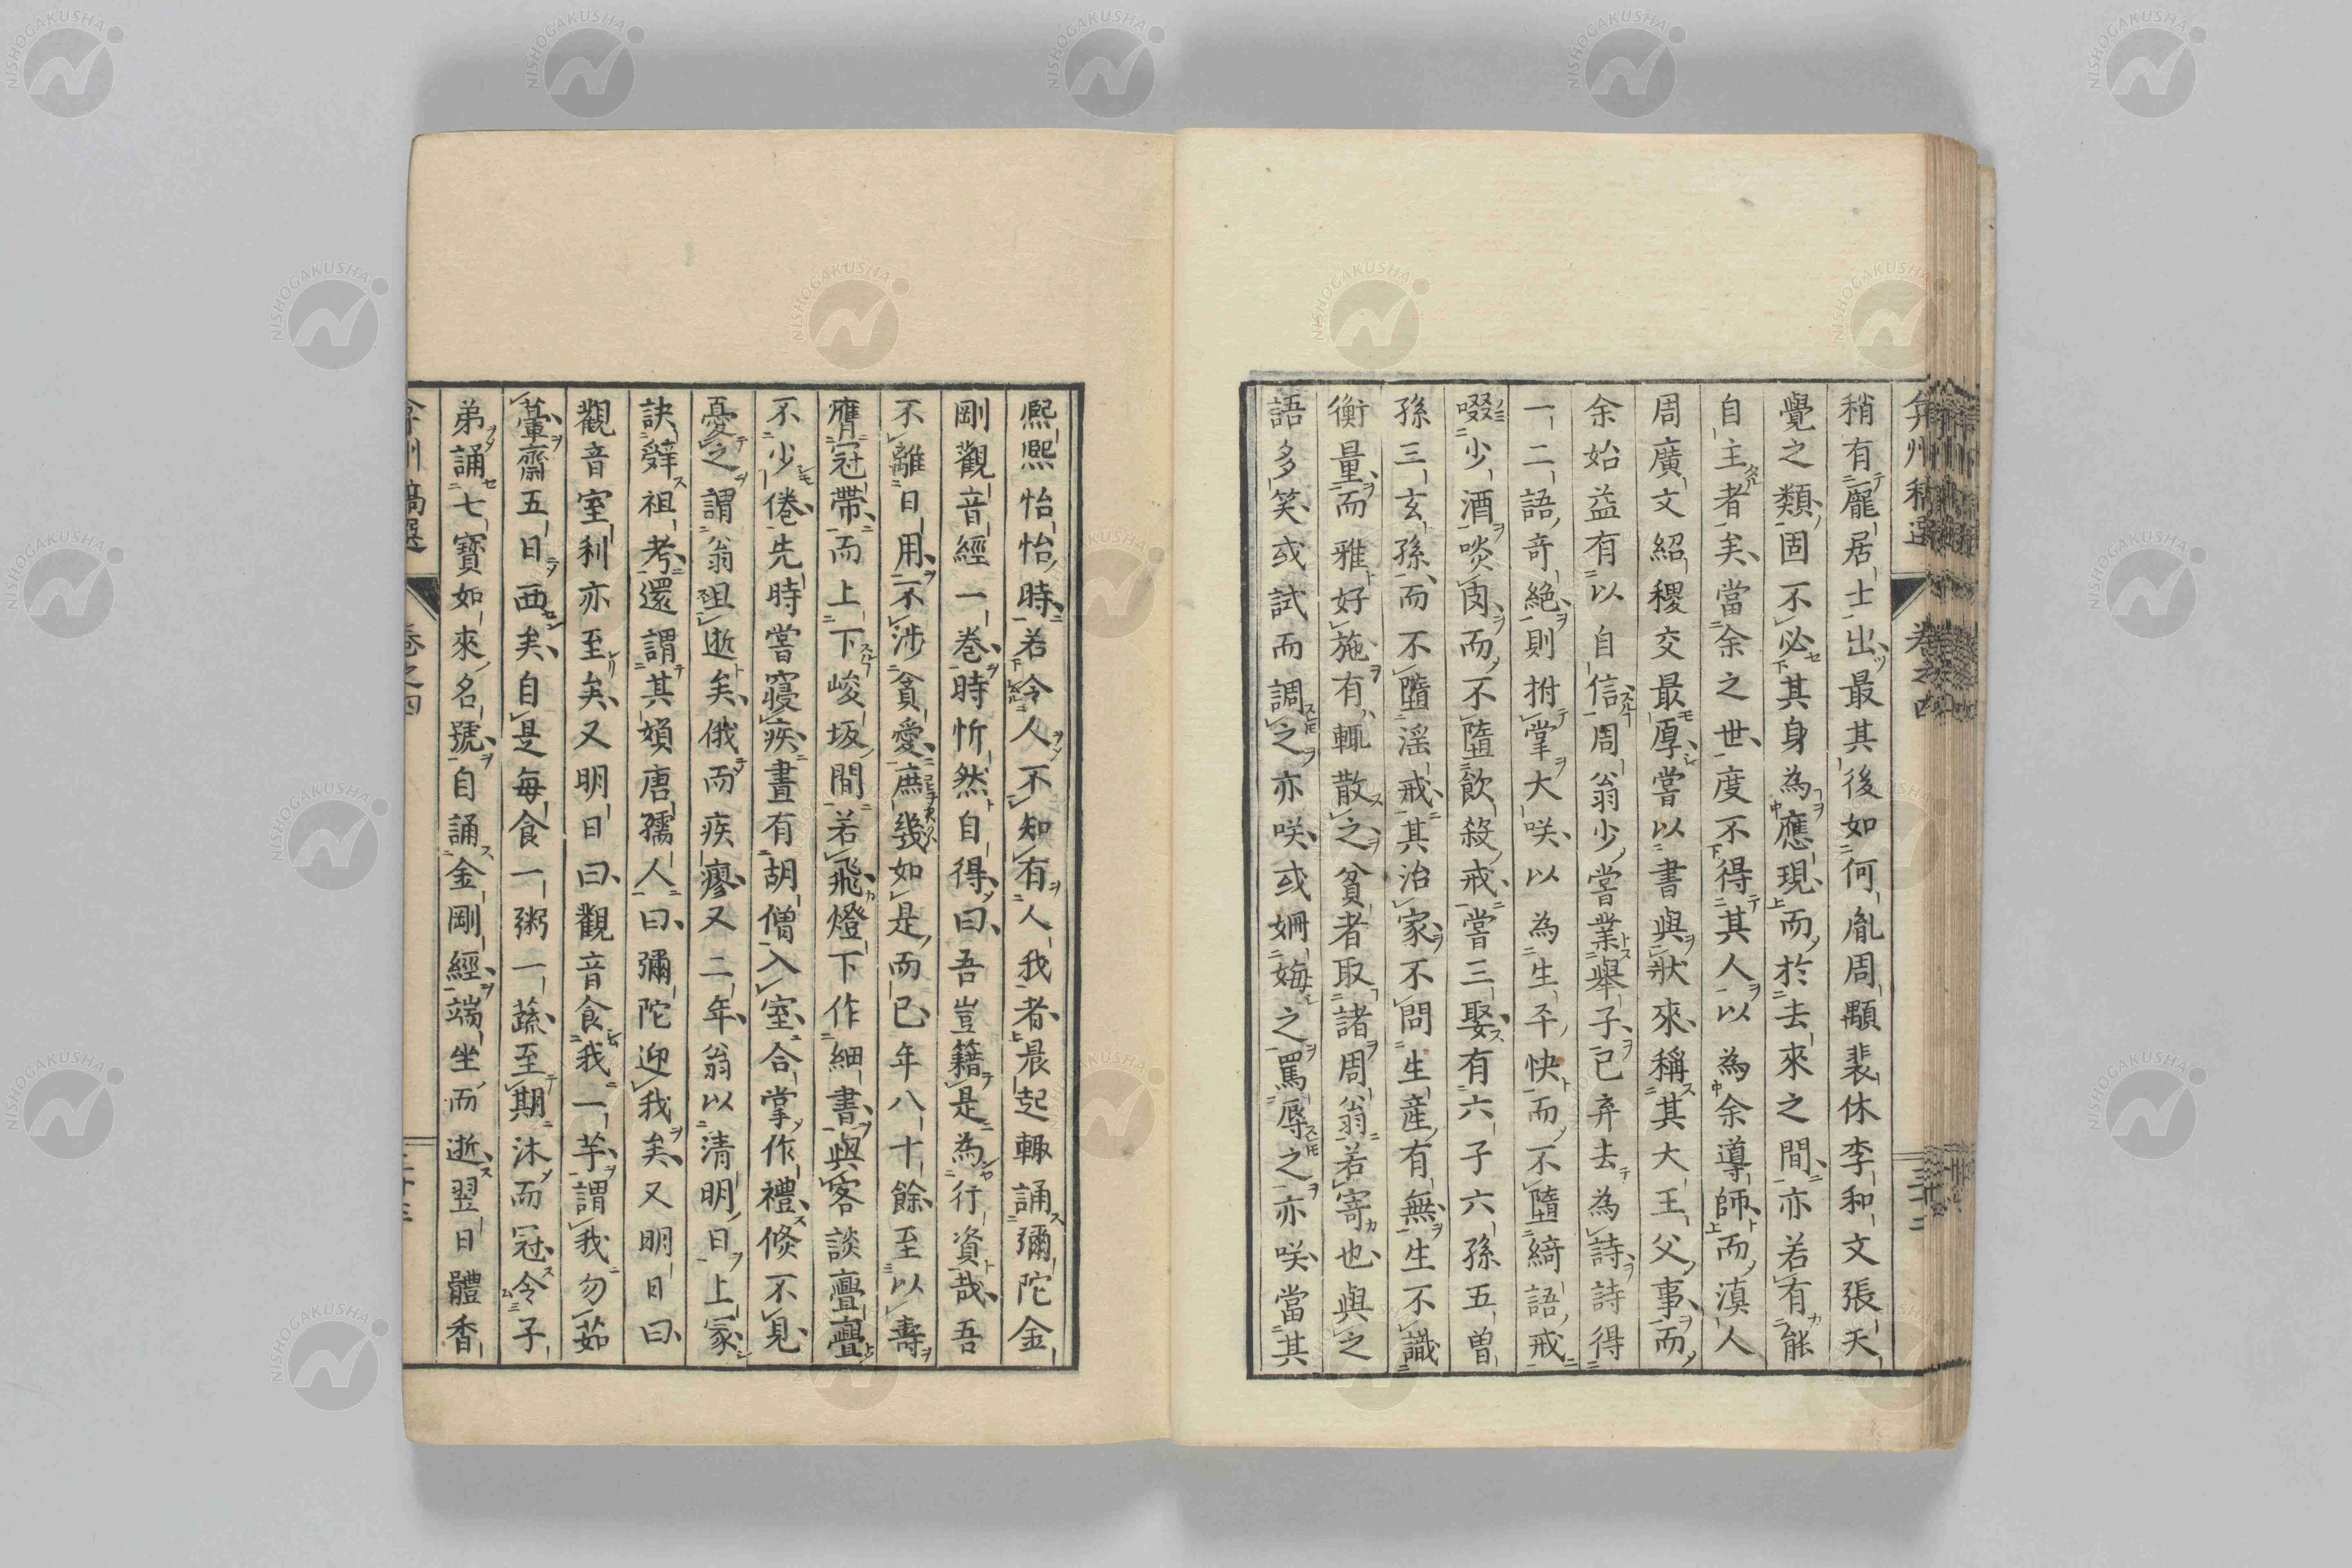 弇州稿選 卷之四 三十二
稍有龐居士出最其後如何胤周顒裴休李和文張天
覺之類固不必其身為應現而於去來之間亦若有能
自主者矣當余之世度不得其人以為余導師而滇人
周廣文紹稷交最厚嘗以書與狀來稱其大王父事而
余始益有以自信周翁少嘗業舉子已弃去為詩詩得
一二語奇絕則拊掌大咲以為生平快而不墮綺語戒
啜少酒啖肉而不墮飲殺戒嘗三娶有六子六孫五曽
孫三玄孫而不墮淫戒其治家不問生產有無生不識
衡量而雅好施有輒散之貧者取諸周翁若寄也與之
語多笑或試而調之亦咲或姍侮之罵辱之亦咲當其
熙熙怡怡時若令人不知有人我者晨起輙誦彌陀金
剛觀音經一卷時忻然自得曰吾豈籍是為行資哉吾
不離日用不涉貧愛庶幾如是而已年八十餘至以壽
膺冠帶而上下峻坂間若飛燈下作細書與客談亹亹
不少倦先時嘗寢疾晝有胡僧入室合掌作禮倐不見
憂之謂翁且逝矣俄而疾瘳又二年翁以清明日上冢
訣辭祖考還謂其嬪唐孺人曰彌陀迎我矣又明日曰
觀音室利亦至矣又明日曰觀音食我一芋謂我勿茹
葷齋五日西矣自是每食一粥一蔬至期沐而冠令子
弟誦七寳如來名號自誦金剛經端坐而逝翌日體香